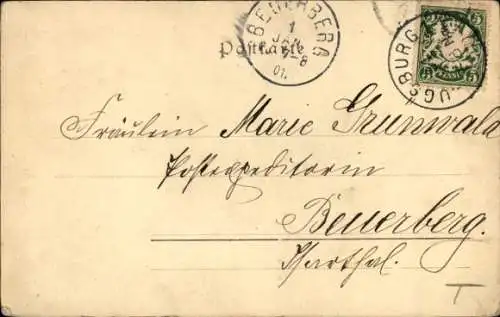 BEUERBERG
1
JAN
7-8
01.
Postkarte
AUGSBURG
5 5
Fräulein Marie Grunwald
Postexpeditorin
Beuerberg.
Isarthal.
T